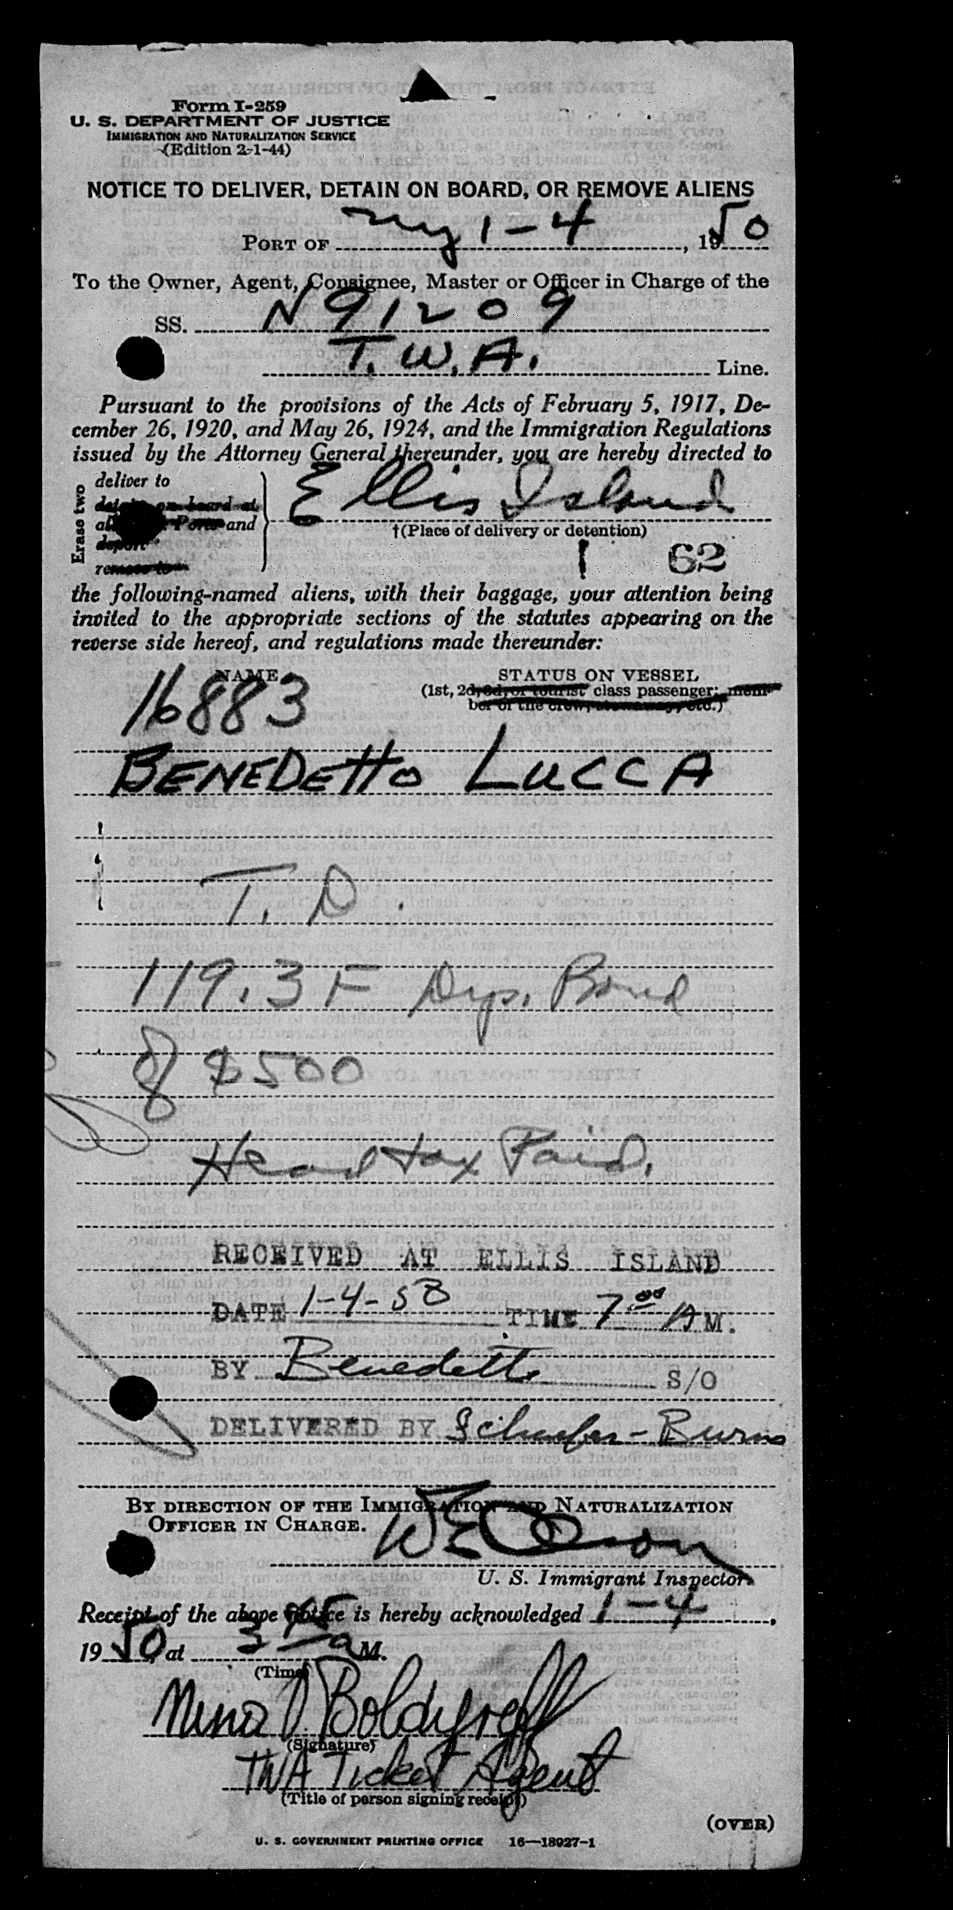 Form I-259
U. S. DEPARTMENT OF JUSTICE
IMMIGRATION AND NATURALIZATION SERVICE
(Edition 2-1-44)
NOTICE TO DELIVER, DETAIN ON BOARD, OR REMOVE ALIENS
PORT OF ny 1-4, 1950
To the Owner, Agent, Consignee, Master or Officer in Charge of the
SS. N 91209
T.W.A. Line.
Pursuant to the provisions of the Acts of February 5, 1917, De-
cember 26, 1920, and May 26, 1924, and the Immigration Regulations
issued by the Attorney General thereunder, you are hereby directed to
Erase two
deliver to
detain on board at
Ports and
deport
remove to
Ellis Island
†(Place of delivery or detention)
1 62
the following-named aliens, with their baggage, your attention being
invited to the appropriate sections of the statutes appearing on the
reverse side hereof, and regulations made thereunder:
NAME STATUS ON VESSEL
(1st, 2d, 3d, or tourist class passenger; mem-
ber of the crew, stowaway, etc.)
16883
BENEDETTO LUCCA
T. D.
119.3 F Dep. Bond
of $500
Head tax Paid.
RECEIVED AT ELLIS ISLAND
DATE 1-4-50 TIME 7 00 A M.
BY Benedetto S/O
DELIVERED BY Schaefer - Burns
BY DIRECTION OF THE IMMIGRATION AND NATURALIZATION
OFFICER IN CHARGE.
WE Olson
U. S. Immigrant Inspector.
Receipt of the above notice is hereby acknowledged 1-4,
1950, at 3 45 a M.
(Time)
Nina D. Boldyreff
(Signature)
TWA Ticket Agent
(Title of person signing receipt)
(OVER)
U. S. GOVERNMENT PRINTING OFFICE 16—18927-1